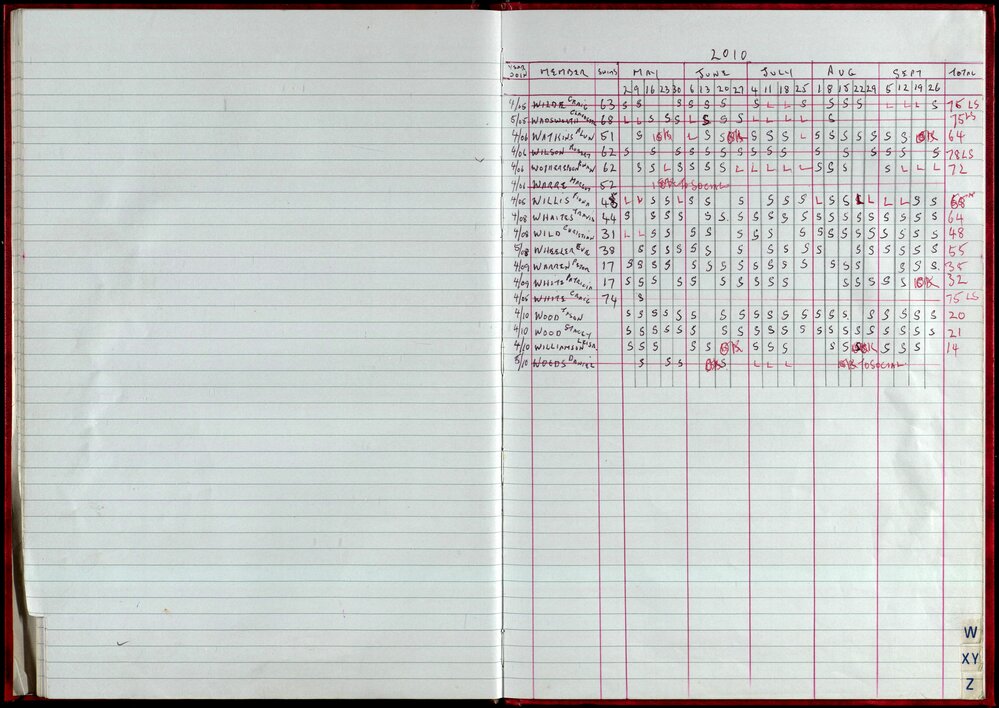 2010
YEAR JOIN MEMBER SWIMS MAY JUNE JULY AUG SEPT TOTAL
2 9 16 23 30 6 13 20 27 4 11 18 25 1 8 15 22 29 5 12 19 26
4/05 WILDE CRAIG 63 S S S S S S S S L L L S S S L L L S 75 LS
5/05 WADSWORTH 68 L L S S S L S S S L L L L S 75 LS
4/06 WATKINS ALUN 51 S L S S S S S L S S S S S S S 64
4/06 WILSON ROBERT 62 S S S S S S S S S S S S S S S S S 78 LS
4/06 WOTHERSPOON EUAN 62 S S L S S S S L L L L L S S S S L L L 72
4/06 WARRE MARCUS 52 TO SOCIAL
4/05 WILLIS FIONA L L S S L S S S S S S L S S L L L L S S 68
4/08 WHAITES TRAVIS 44 S S S S S S S S S S S S S S S S S S S 64
4/08 WILD CHRISTIAN 31 L L S S S S S S S S S S S S S S S S S 48
5/08 WHEELER EVE 38 S S S S S S S S S S S S S S S S S 55
4/09 WARREN PETER 17 S S S S S S S S S S S S S S S S S S 35
4/09 WHITE PATRICIA 17 S S S S S S S S S S S S S S S 32
4/05 WHITE CRAIG 74 S 75 LS
4/10 WOOD JASON S S S S S S S S S S S S S S S S S S S S 20
4/10 WOOD STACEY S S S S S S S S S S S S S S S S S S S S S 21
4/10 WILLIAMSON LEISA S S S S S S S S S S S 14
5/10 WOODS DANIEL S S S S L L L TO SOCIAL
W
XY
Z